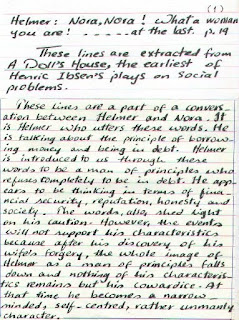 (1)
Helmer: Nora, Nora! What a woman
you are! ..... at the last. p. 19
These lines are extracted from
A Doll's House, the earliest of
Henric Ibsen's plays on social
problems.
These lines are a part of a convers-
ation between Helmer and Nora. It
is Helmer who utters these words. He
is talking about the principle of borrow-
ing money and being in debt. Helmer
is introduced to us through these
words to be a man of principles who
refuses completely to be in debt. He app-
ears to be thinking in terms of fina-
ncial security, reputation, honesty and
society. The words, also, shed light
on his caution. However, the events
will not support his characteristics
because after his discovery of his
wife's forgery, the whole image of
Helmer as a man of principles falls
down and nothing of his characteris-
tics remains but his cowardice. At
that time he becomes a narrow-
minded, self-centred, rather unmanly
character.